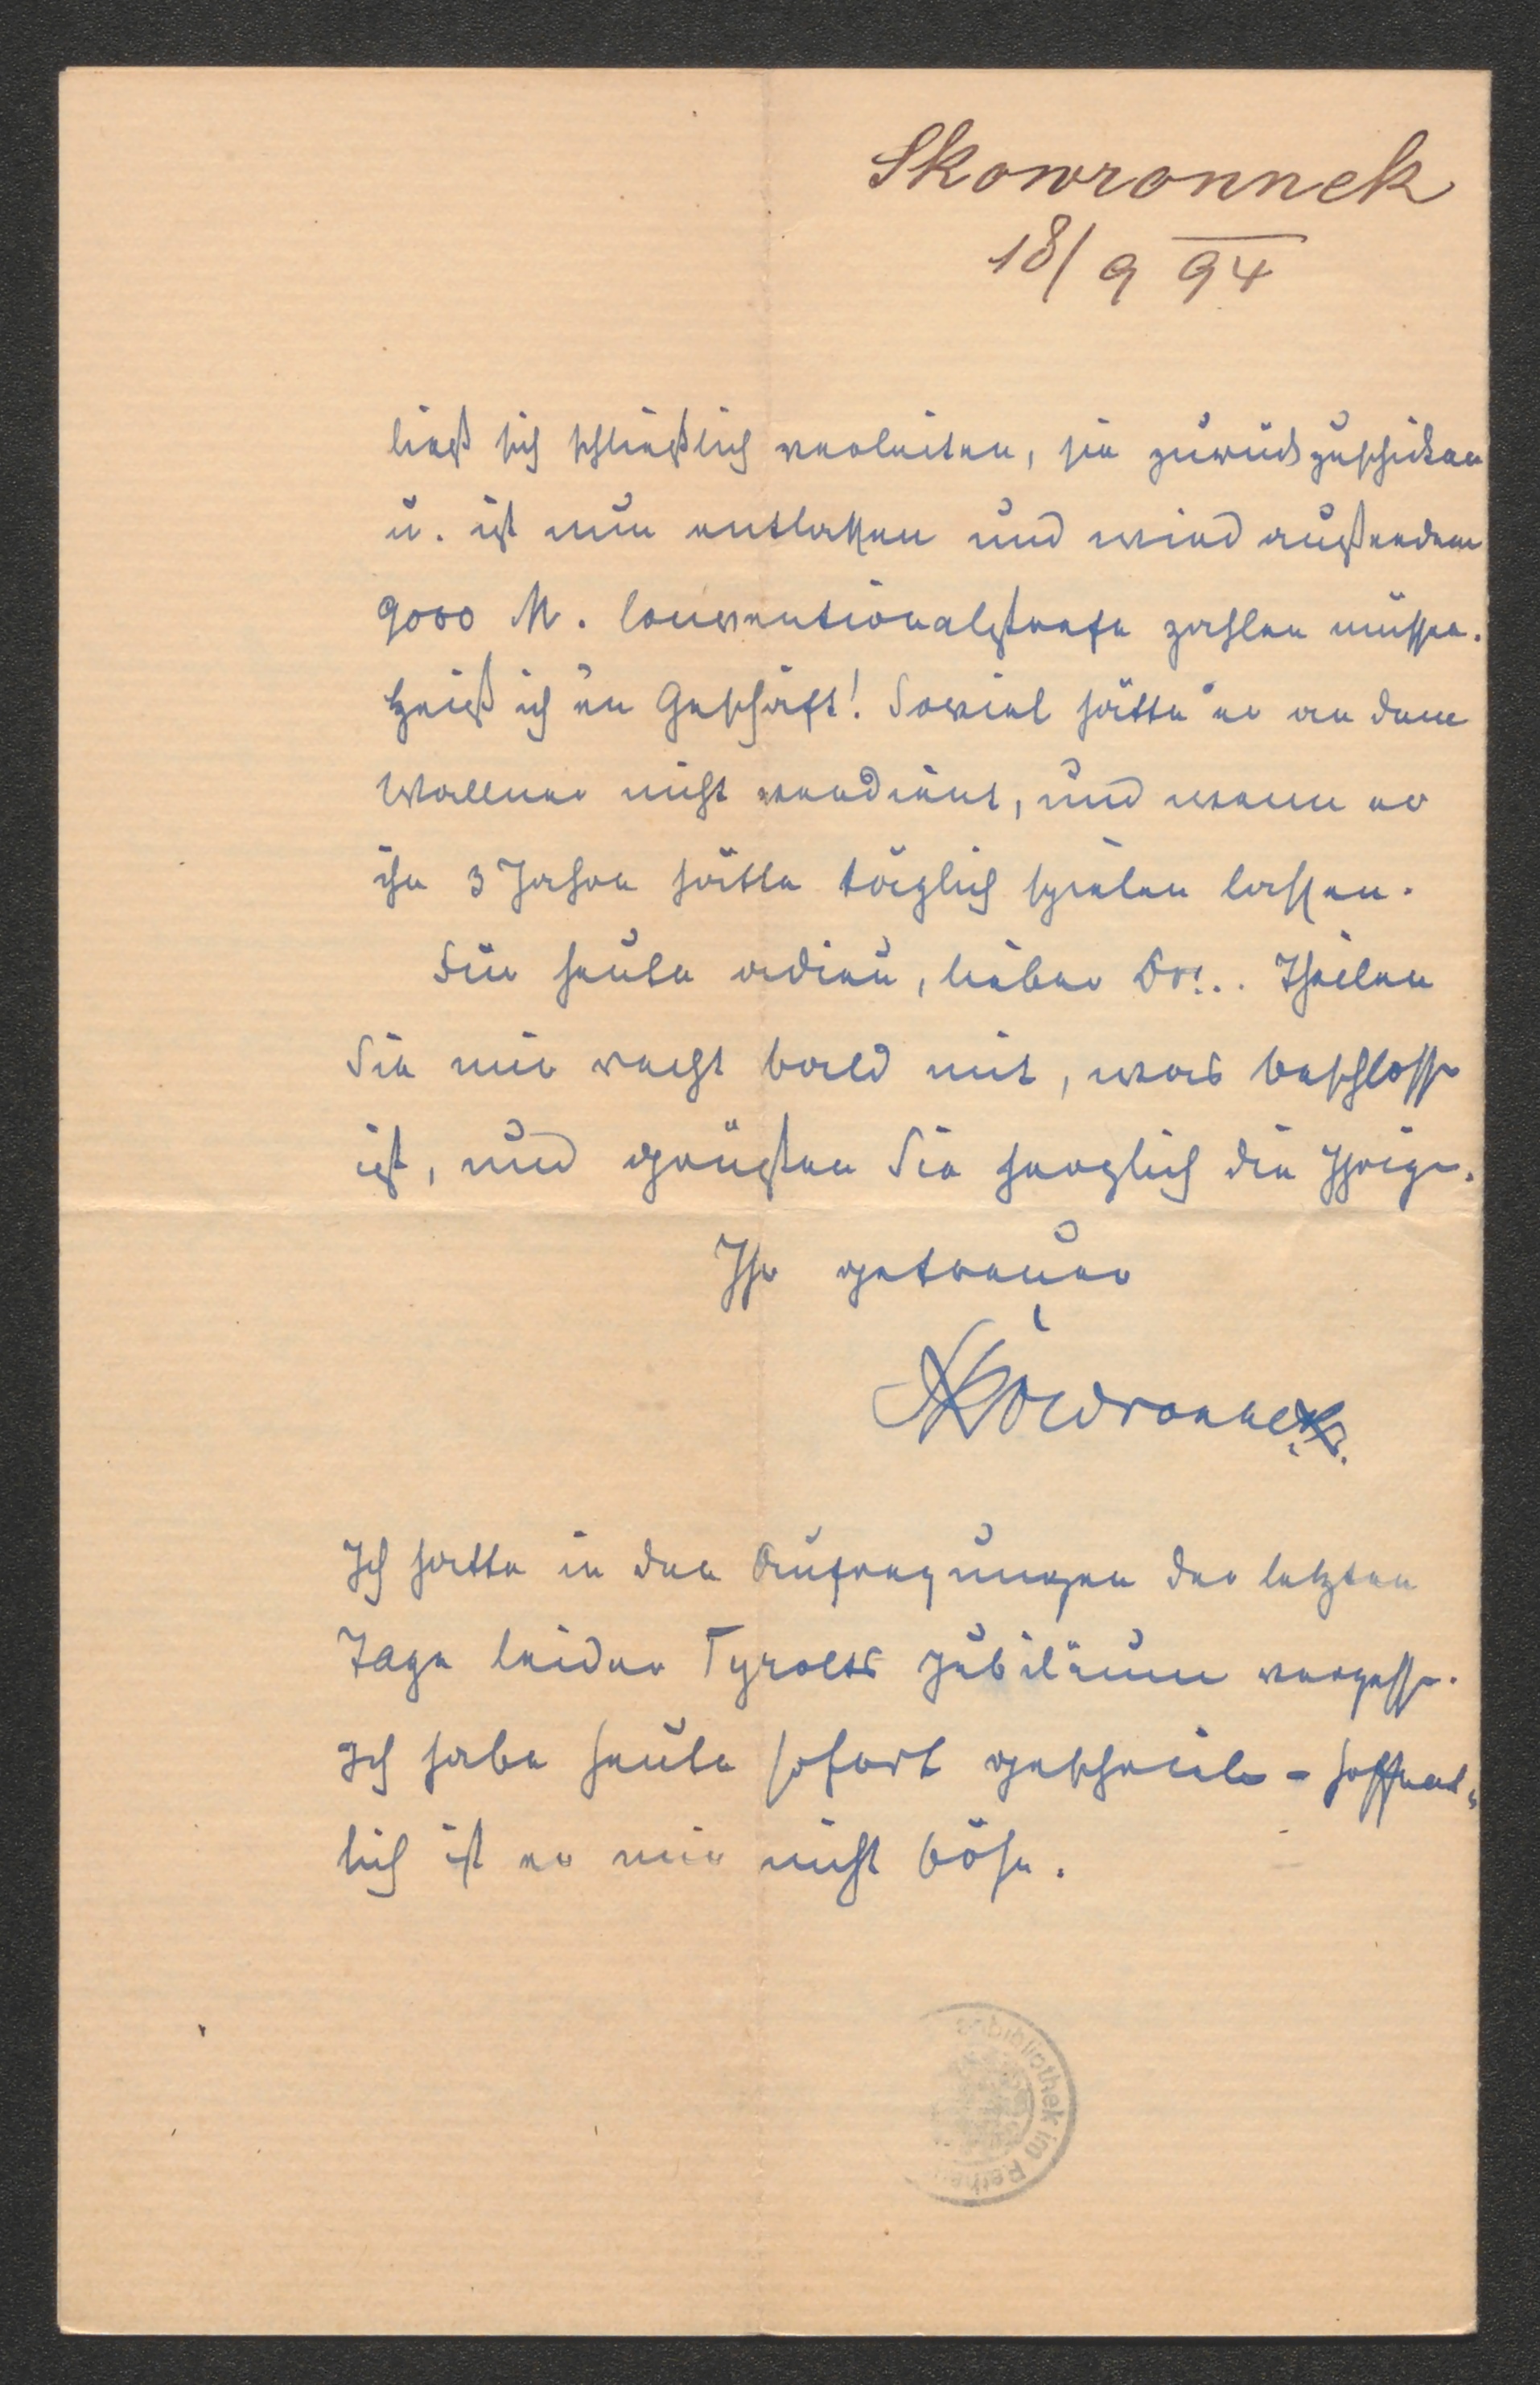 Skowronnek
18/9 94
ließ sich schließlich verleiten, sie zurückzuschicken
u. ist nun entlassen und wird außerdem
9000 M. Conventionalstrafe zahlen müssen.
Heiß ich 'en Geschäft! Soviel hätte er an dem
Wallner nicht verdient, und wenn er
ihn 3 Jahre hätte täglich spielen lassen.
Für heute adieu, lieber Dr!.. Theilen
Sie mir recht bald mit, was beschlossen
ist, und grüßen Sie herzlich die Ihrigen.
Ihr getreuer
Skowronnek.
Ich hatte in den Aufregungen der letzten
Tage leider Tyrolts Jubiläum vergessen.
Ich habe heute sofort geschrieben - hoffent-
lich ist er mir nicht böse.
bibliothek im